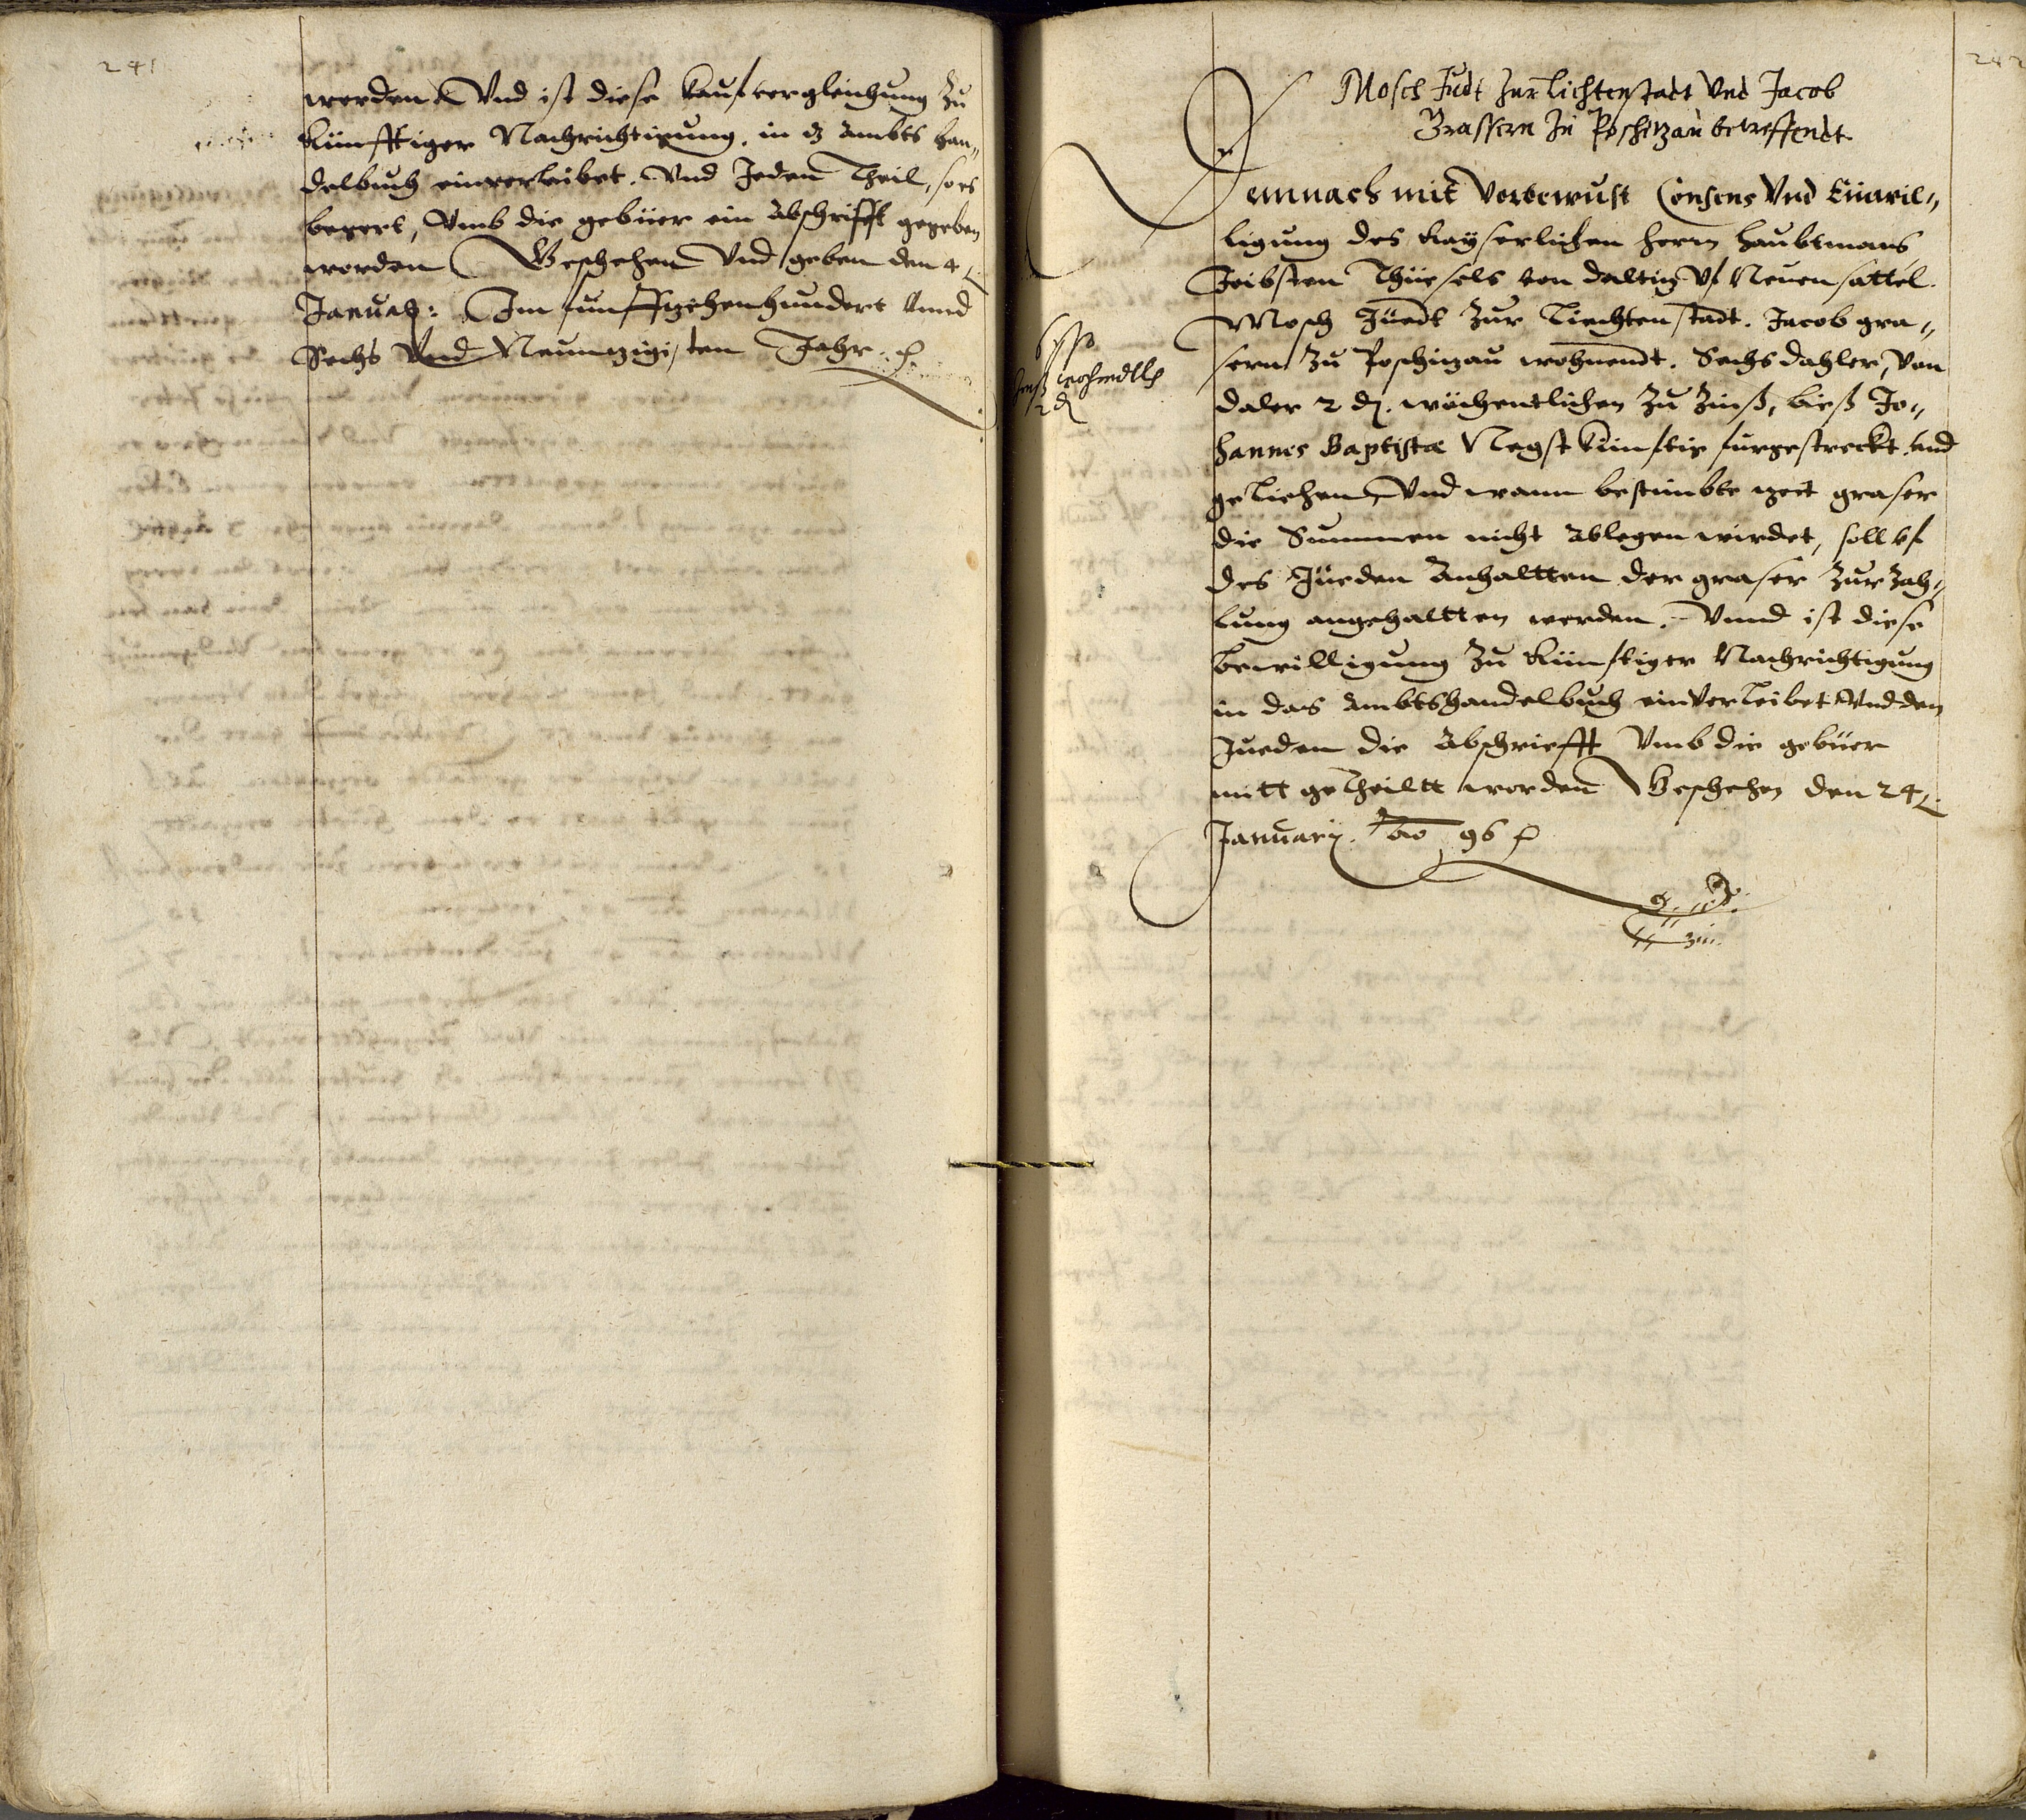 241
werden. Vnd ist diese kaufvergleichung zu
künfftiger Nachrichtigung, in dz Ambts han„
delbuch einverleibet. Vnd Jeden Theil, so es
begert, Vmb die gebüer ein Abschrifft gegeben
worden Geschehen Vnd geben den 4
Januarij: Im funffzehenhundert Vnnd
Sechs Vnd Neunzigisten Jahr
242
Mosch Judt zur Lichtenstadt Vnd Jacob
Grassern zu Poschitzau betreffendt
Demnach mit Vorbewust Consens Vnd Einwil„
ligung des Kayserlichen herrn haubtmans
Seibsten Thüesels von Daltiz Vf Neuensattel
Mosch Jüedt zur Liechtenstadt. Jacob gra„
sern zu Poschizau wohnendt. Sechs dahler, Von
daler 2 d. wöchentlichen zu Zinß, bieß Jo„
hannes Baptistæ Negst künftig furgestreckt Vnd
geliehen, Vnd wann bestimbte zeit graser
die Summen nicht Ablegen wirdet, soll vf
des Jüeden Anhaltten der graser zur Zah„
lung angehaltten werden. Vnnd ist diese
bewilligung zu künftiger Nachrichtigung
in das Ambtshandelbuch einverleibet Vnd den
Jueden die Abschriefft Vmb die gebüer
mitt getheiltt worden Geschehen den 24
Januarij. Ao 96
6 ßo
2 d